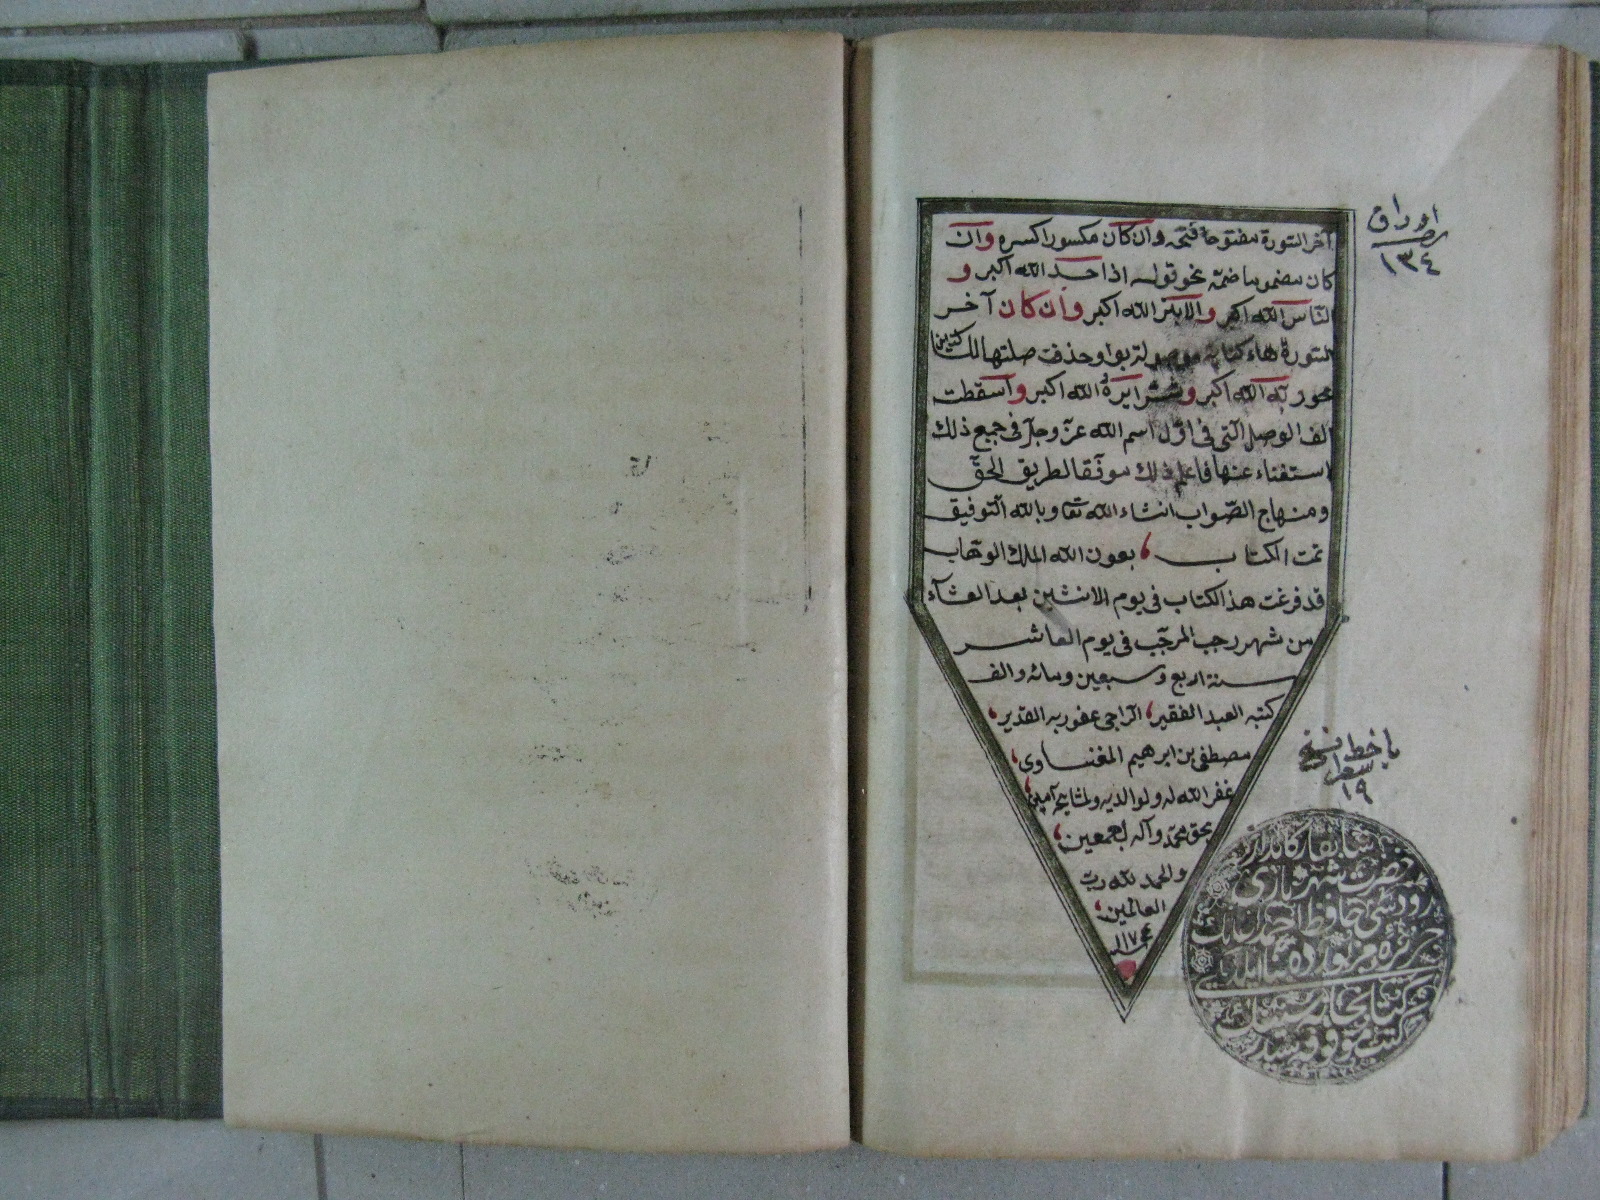 اوراق
١٣٤
آخر السورة مفتوحا فتحه وان كان مكسورا كسره وان
كان مضموما ضمّه نحو قوله اذا حسد الله اكبر و
الناس الله اكبر والابتر الله اكبر وان كان آخر
السورة هاء كناية موصولة بواو حذفت صلتها للساكنين
نحو ربه الله اكبر وشرا يره الله اكبر واسقطت
الف الوصل التى فى اوّل اسم الله عزّ وجلّ فى جميع ذلك
استغناء عنها فاعلم ذلك موفّقا لطريق الحقّ
ومنهاج الصّواب انشاء الله تعا وبالله التوفيق
تمت الكتاب بعون الله الملك الوهاب
قد فرغت هذا الكتاب فى يوم الاثنين بعد العشآء
من شهر رجب المرجّب فى يوم العاشر
سنة اربع وسبعين ومائه والف
كتبه العبد الفقير الراجى عفو ربه القدير
مصطفى بن ابرهيم المغنساوى
غفر الله له ولوالديه ولمشايخه آمين
بحق محمد وآله اجمعين
والحمد لله ربّ
العالمين
سنة ١١٧٤
با خط نسخ
سطر
١٩